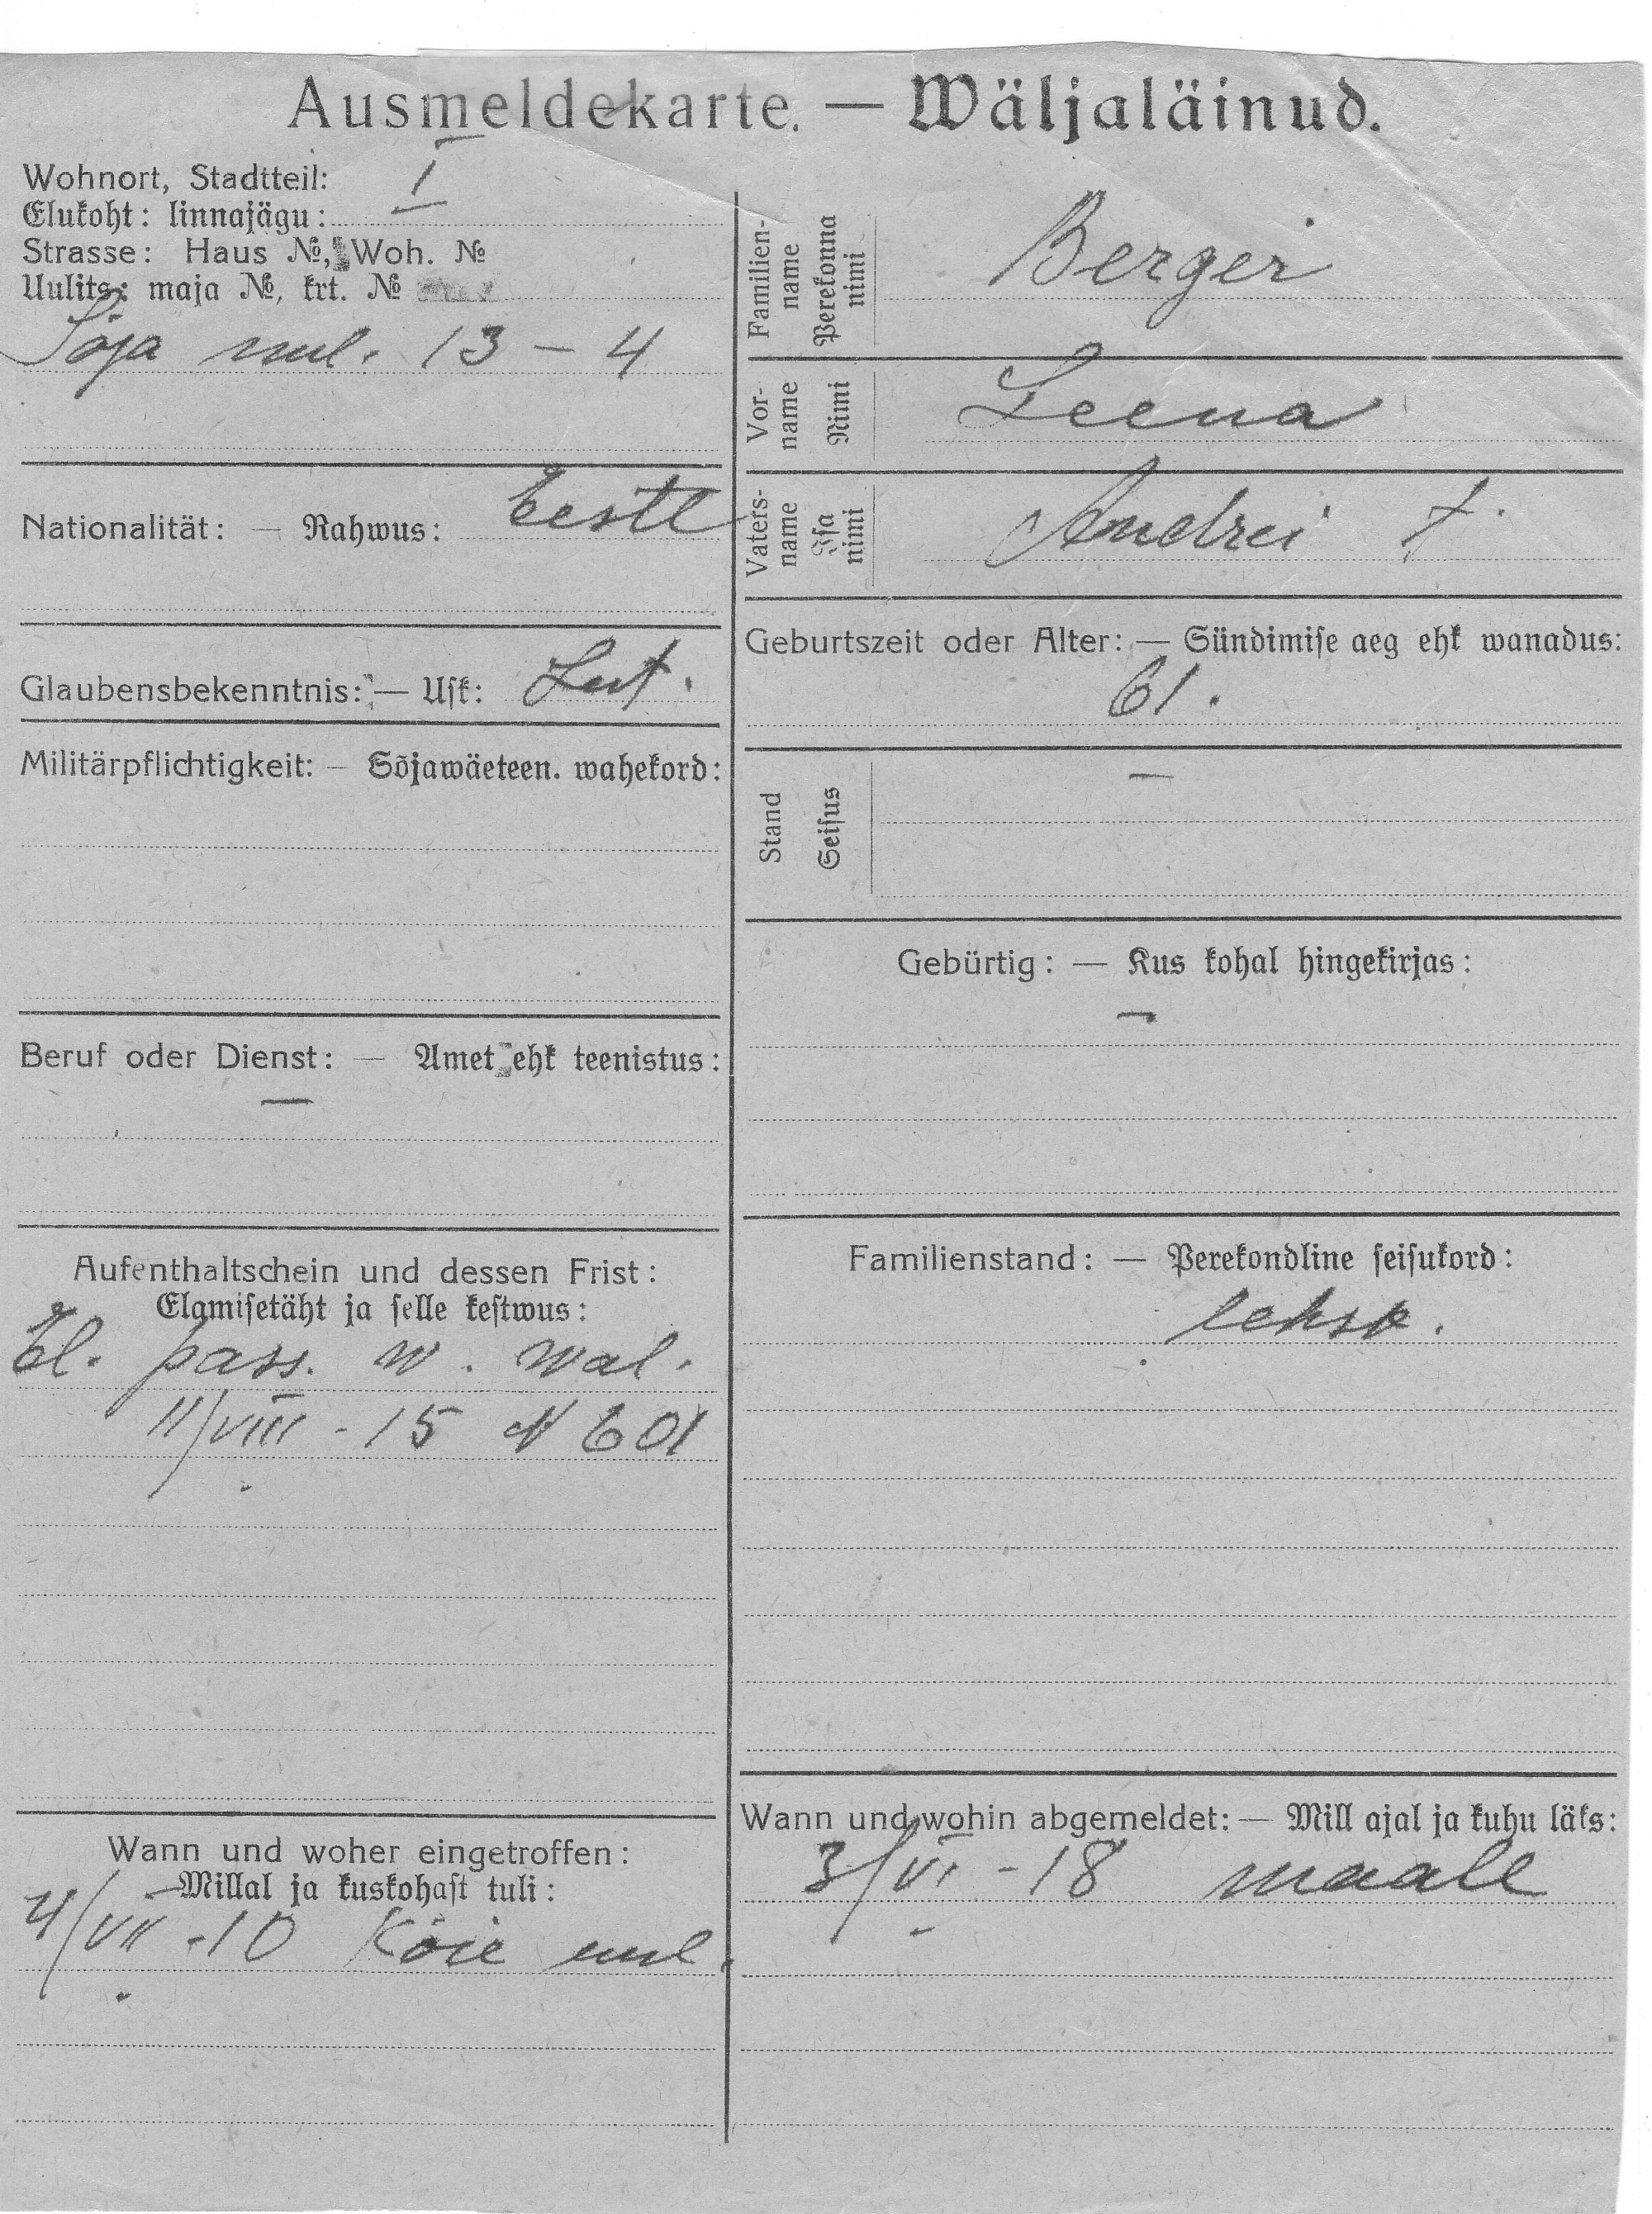 Ausmeldekarte. — Wäljaläinud.
Wohnort, Stadtteil: I
Elukoht: linnajägu:
Strasse: Haus №, Woh. №
Uulits: maja №, krt. №
Söja uul. 13 – 4
Nationalität: — Rahwus: Eestl
Glaubensbekenntnis: — Usk: Lut.
Militärpflichtigkeit: – Sõjawäeteen. wahekord:
Beruf oder Dienst: — Amet ehk teenistus:
—
Aufenthaltschein und dessen Frist:
Elamisetäht ja selle kestwus:
El. pass. W. wal.
11/VIII - 15 N 601
Wann und woher eingetroffen:
—Millal ja kuskohast tuli:
4/VII -10 Köie uul.
Familien-
name
Perekonna
nimi
Berger
Vor-
name
Nimi
Leena
Vaters-
name
Isa
nimi
Andrei †.
Geburtszeit oder Alter: — Sündimise aeg ehk wanadus:
61.
Stand
Seisus
—
Gebürtig: — Kus kohal hingekirjas:
—
Familienstand: — Perekondline seisukord:
Wann und wohin abgemeldet: — Mill ajal ja kuhu läks:
3/VI - 18 maale